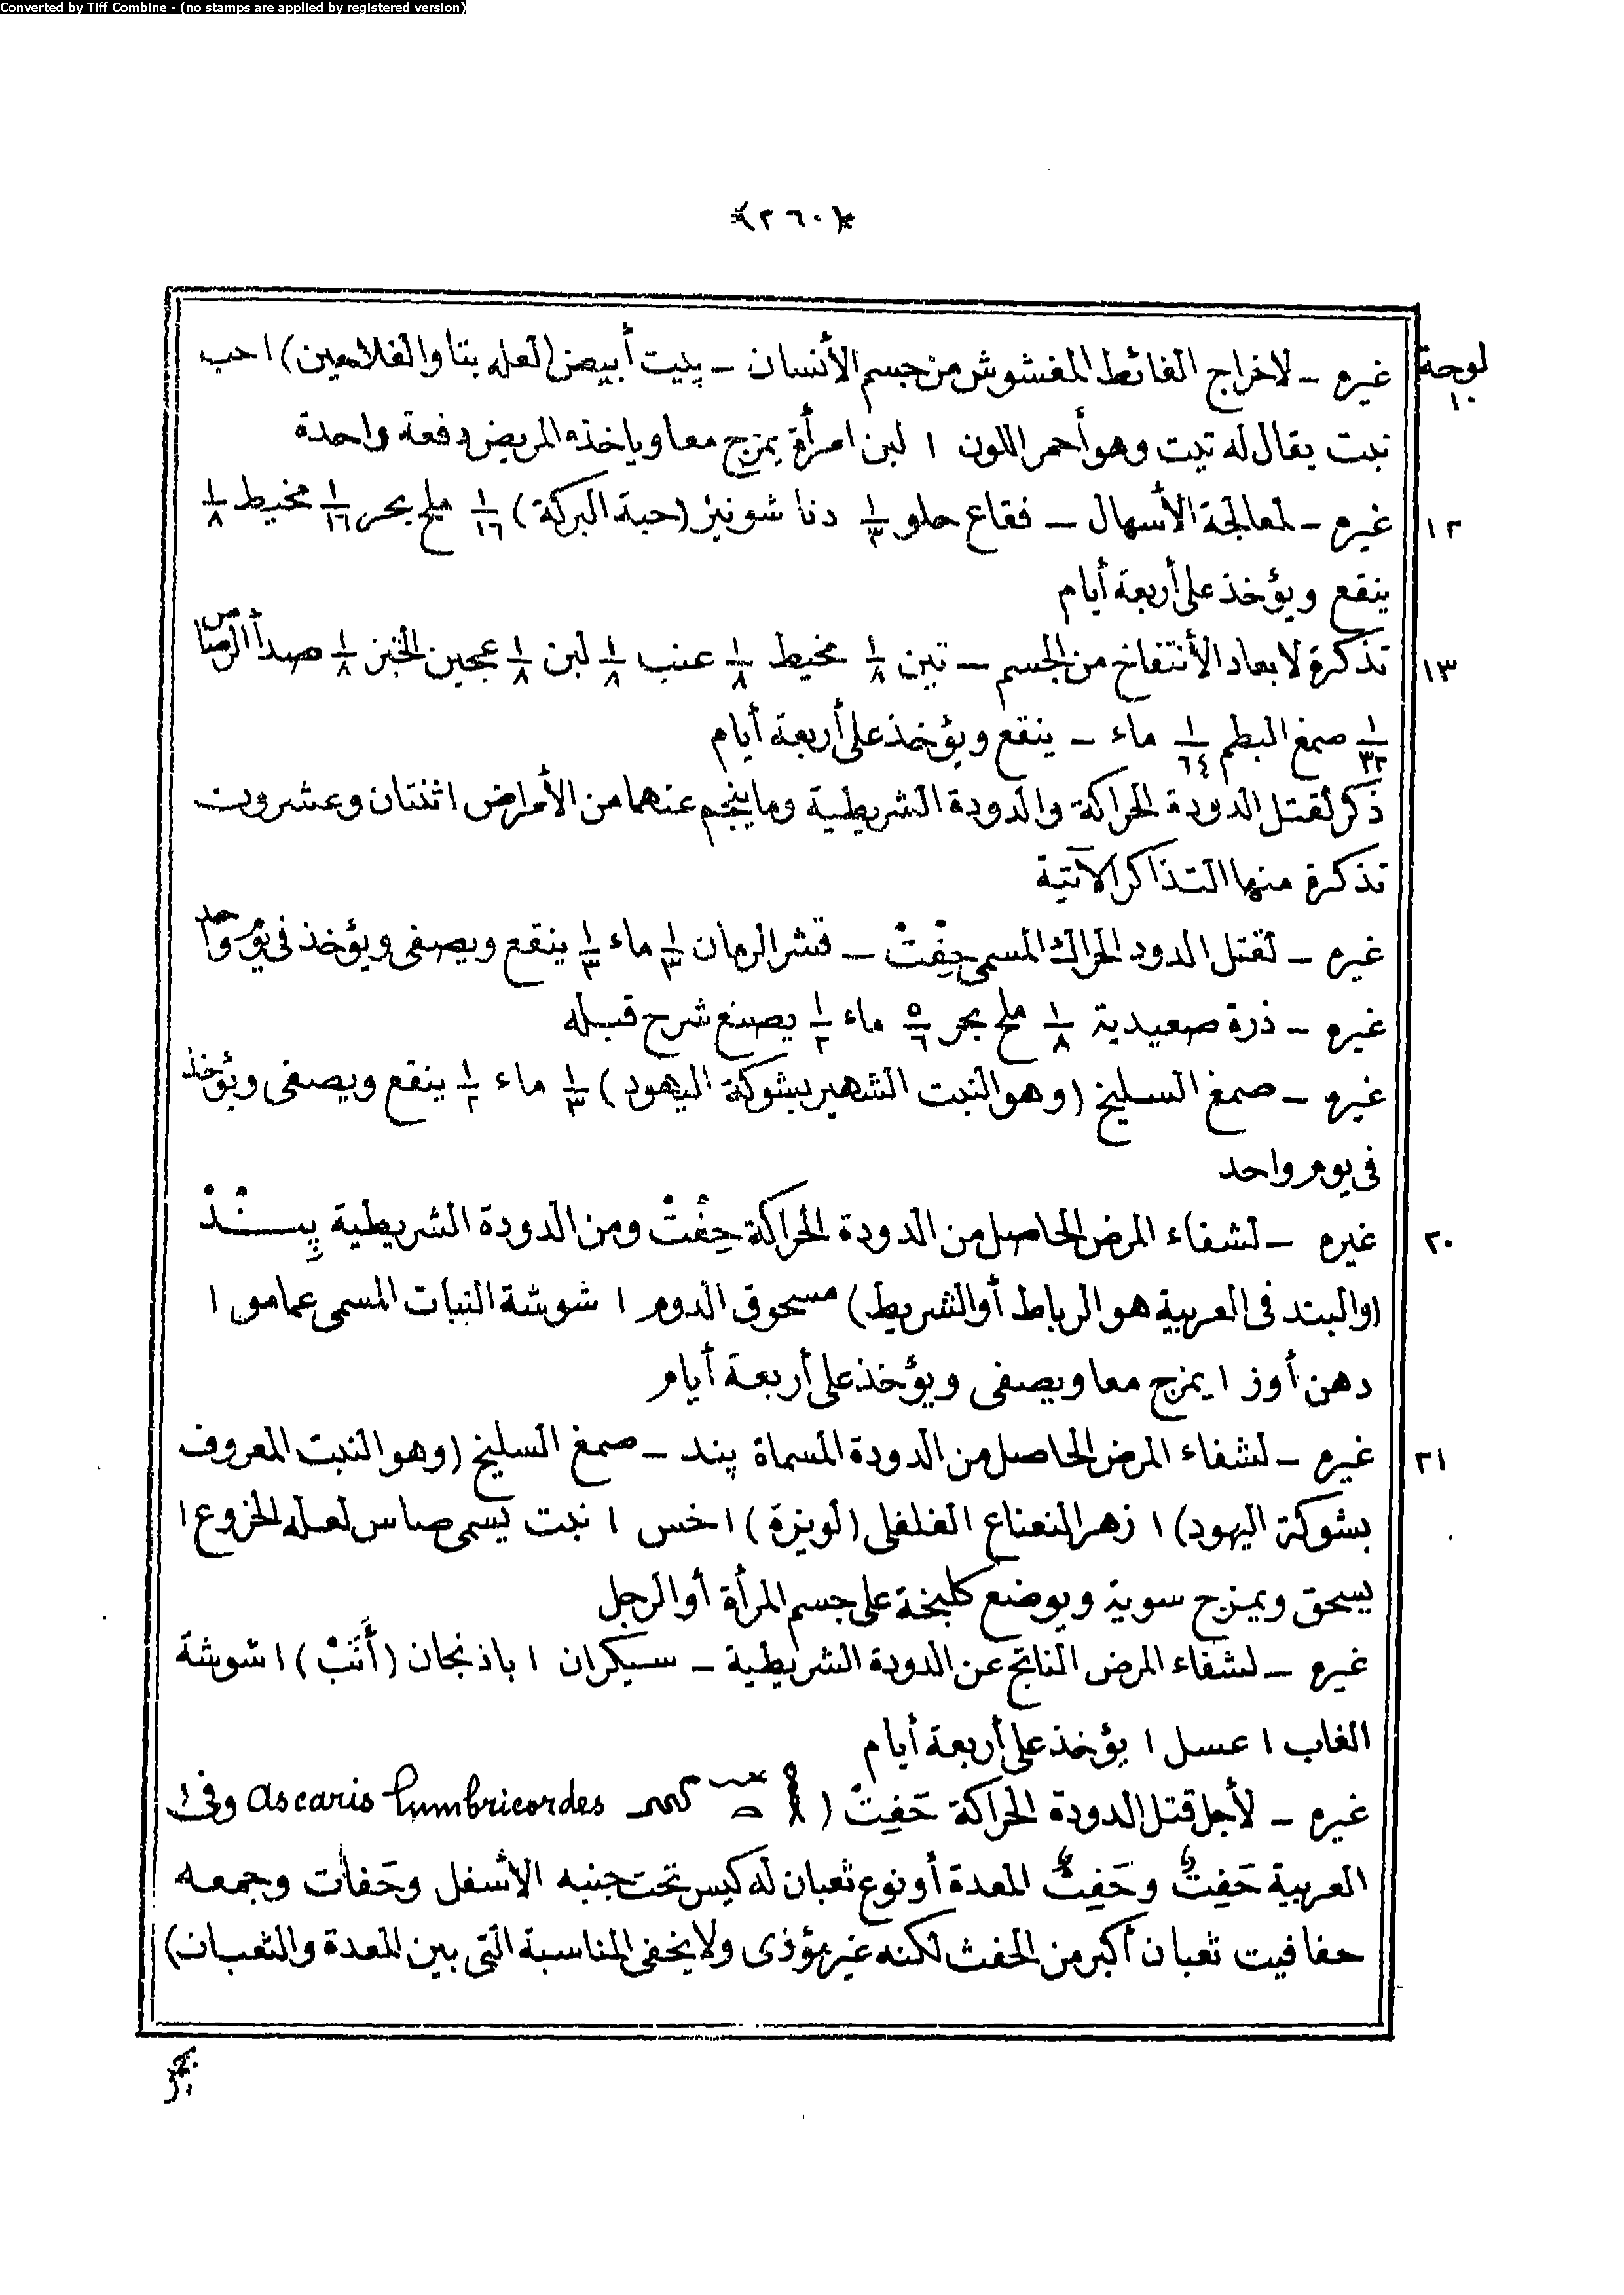 Converted by Tiff Combine - (no stamps are applied by registered version)
﴿٢٦٠﴾
لوحة ١٠
غيره - لاخراج الغائط المغشوش من جسم الأنسان - پيت أبيض (لعله بتاو الفلاحين) ١ حب
نبت يقال له تيت وهو أحمر اللون ١ لبن امرأة يمزج معا وياخذه المريض دفعة واحدة
١٢ غيره - لمعالجة الأسهال - فقاع حلو ١/٣ دنا شونيز (حبة البركة) ١/١٦ ملح بحر ١/١٦ مخيط ١/٨
ينقع ويؤخذ على أربعة أيام
١٣ تذكرة لابعاد الأنتفاخ من الجسم - تين ١/٨ مخيط ١/٨ عنب ١/٨ لبن ١/٨ عجين الخبز ١/٨ صدأ الرصاص
١/٣٢ صمغ البطم ١/٦٤ ماء - ينقع ويؤخذ على أربعة أيام
ذكر لقتل الدودة الحراكة والدودة الشريطية وما ينجم عنهما من الأمراض اثنتان وعشرون
تذكرة منها التذاكر الآتية
غيره - لقتل الدود الحراك المسمى حِفْتْ - قشر الرمان ١/٣ ماء ١/٣ ينقع ويصفى ويؤخذ في يوم واحد
غيره - ذرة صعيدية ١/٨ ملح بحر ٥/٦ ماء ١/٢ يصنع شرح قبله
غيره - صمغ السليخ (وهو النبت الشهير بشوكة اليهود) ١/٣ ماء ١/٢ ينقع ويصفى ويؤخذ
فى يوم واحد
٢٠ غيره - لشفاء المرض الحاصل من الدودة الحراكة حِفْتْ ومن الدودة الشريطية پِنْدْ
(والبند فى العربية هو الرباط أو الشريط) مسحوق الدوم ١ شوشة النبات المسمى عمامو ١
دهن أوز ١ يمزج معا ويصفى ويؤخذ على أربعة أيام
٢١ غيره - لشفاء المرض الحاصل من الدودة المسماة پند - صمغ السليخ (وهو النبت المعروف
بشوكة اليهود) ١ زهر النعناع الفلفلى (لويزة) ١ خس ١ نبت يسمى صاس لعله الخروع ١
يسحق ويمزج سوية ويوضع كلبخة على جسم المرأة أو الرجل
غيره - لشفاء المرض الناتج عن الدودة الشريطية - سيكران ١ باذنجان (أَنَبْ) ١ شوشة
الغاب ١ عسل ١ يؤخذ على أربعة أيام
غيره - لأجل قتل الدودة الحراكة حَفِتْ ( Ascaris lumbricordes وفى
العربية حَفِتٌ وحَفِثٌ المعدة أو نوع ثعبان له كيس تحت جنبه الأسفل وحَفات وجمعه
حفافيت ثعبان أكبر من الحفث لكنه غير مؤذى ولا يخفى المناسبة التى بين المعدة والثعبان)